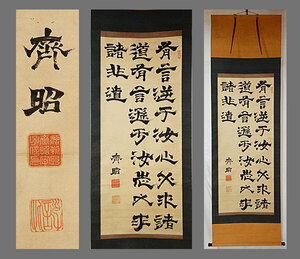 齊昭
有言逆于汝心必求諸
道有言遜于汝志必求
諸非道
齊昭
有言逆于汝心必求諸
道有言遜于汝志必求
諸非道
齊昭